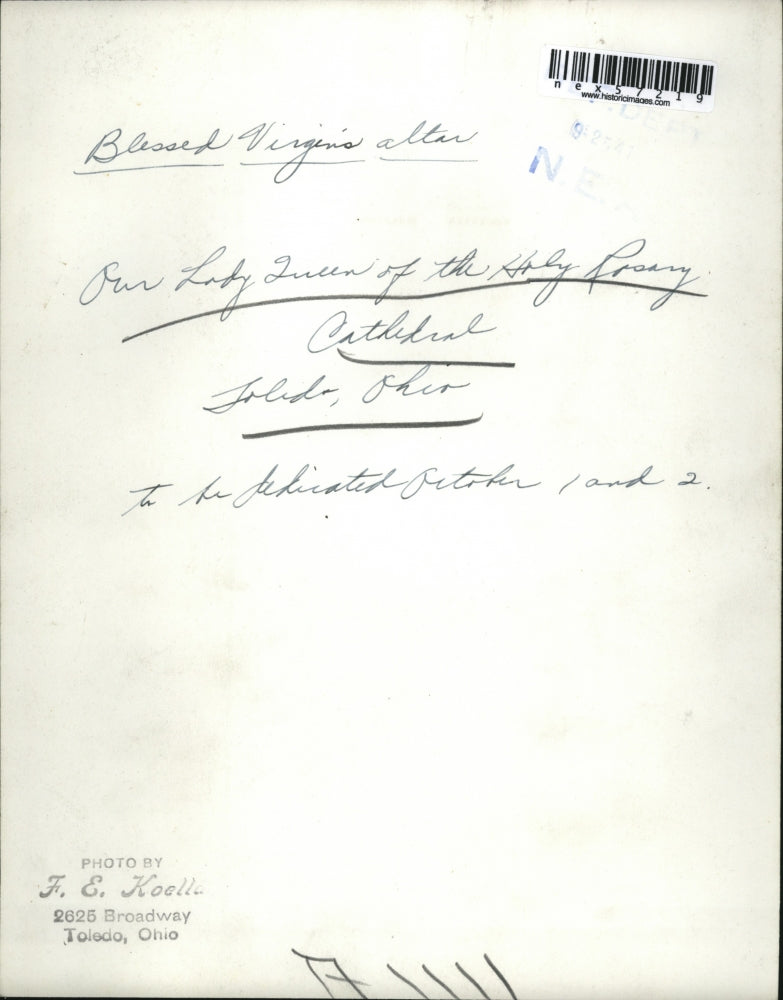 nex57219
www.historicimages.com
N.E.
Blessed Virgin's altar
Our Lady Queen of the Holy Rosary
Cathedral
Toledo, Ohio
to be dedicated October 1 and 2.
PHOTO BY
F. E. Koella
2625 Broadway
Toledo, Ohio